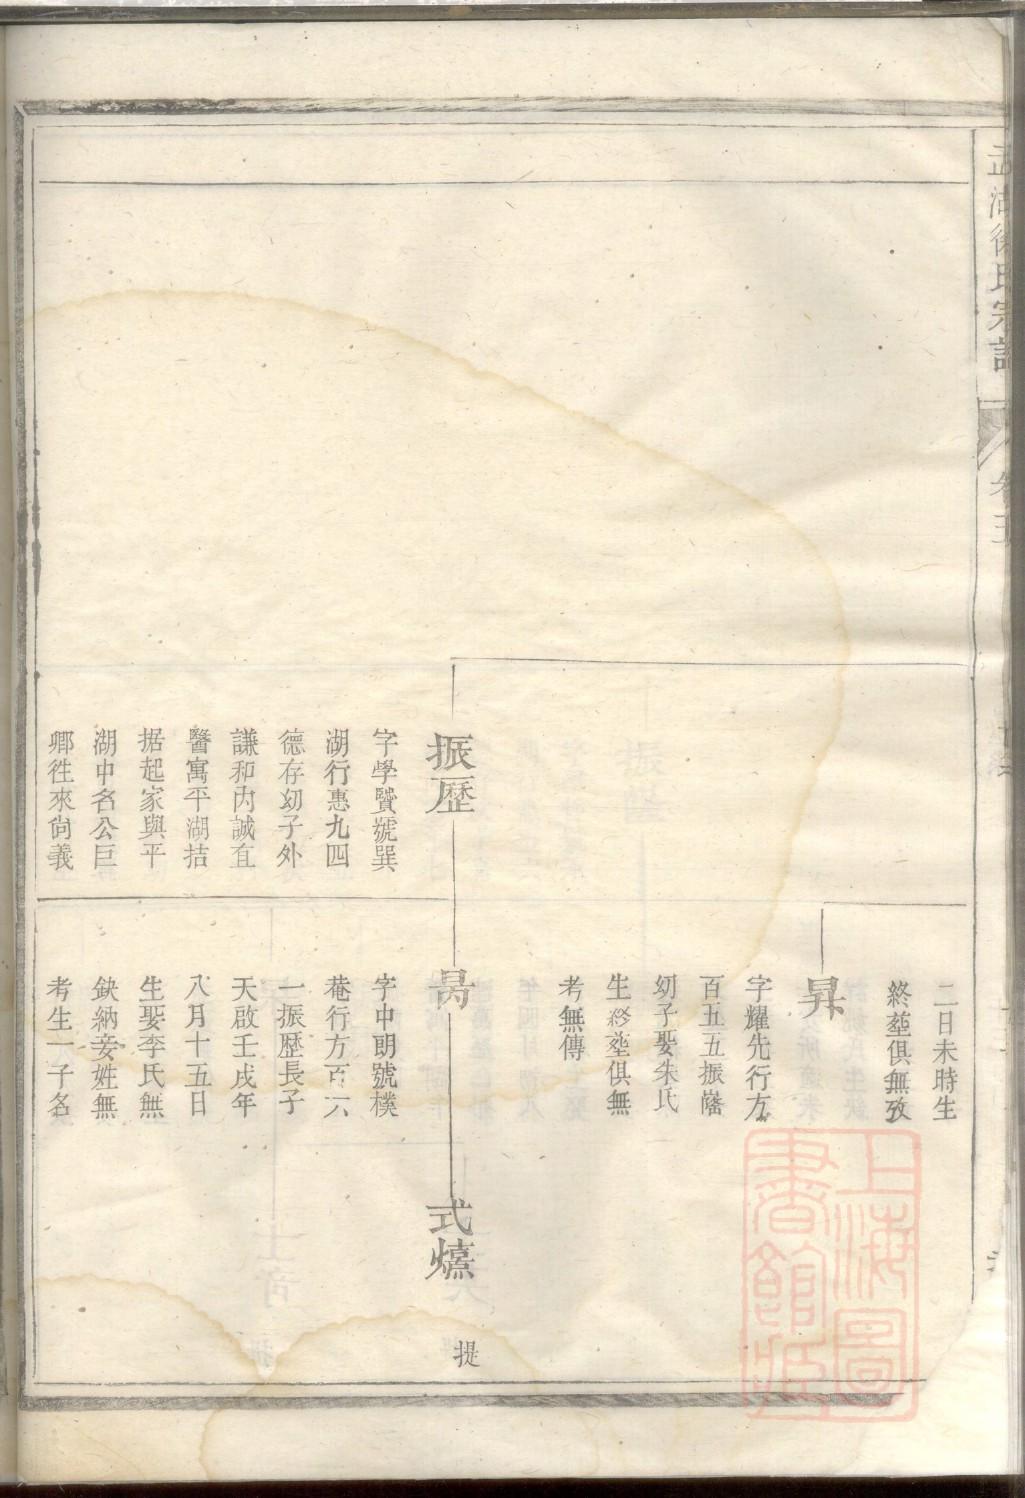 湖徐氏宗譜
卷五
振歷
字學贒號巽
湖行惠九四
德存幼子外
謙和内誠直
醫寓平湖拮
据起家與平
湖中名公巨
卿徃來尙義
二日未時生
終塟俱無攷
昇
字耀先行方
百五五振蕃
幼子娶朱氏
生終塟俱無
考無傳
昺
字中明號樸
菴行方百六
一振歷長子
天啟壬戌年
八月十五日
生娶李氏無
缺納妾姓無
考生一子名
式燾
提
上海圖
書館藏